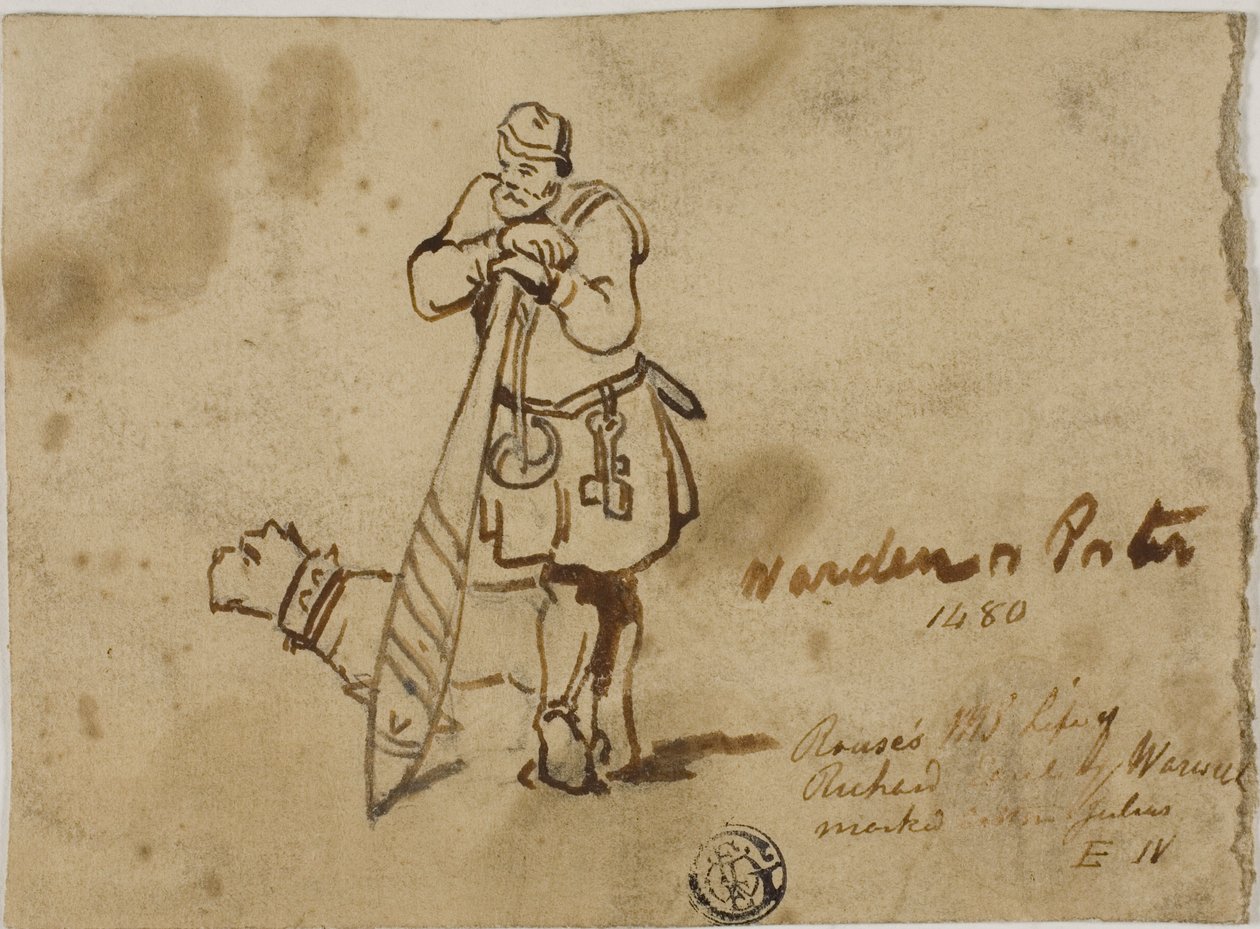 Warden or Porter
1480
Rouse's MS life of
Richard Earl of Warwick
marked Julius
E IV